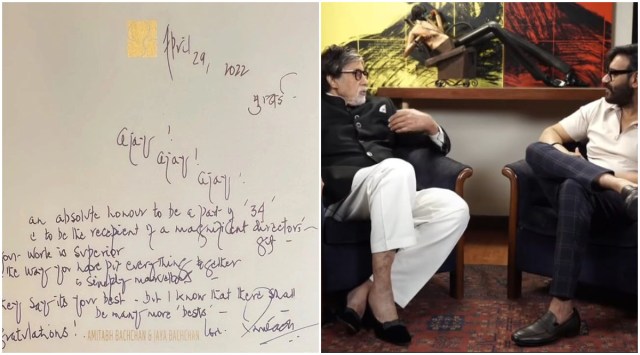 April 29, 2022
मुंबई -
Ajay !
Ajay !
Ajay !
an absolute honour to be a part of '34'
& to be the recepient of a magnificent directors'
gift -
work is superior
the way you have put everything together
is simply marvellous
say its your best - but I know that there shall
be many more 'bests' -
AMITABH BACHCHAN & JAYA BACHCHAN